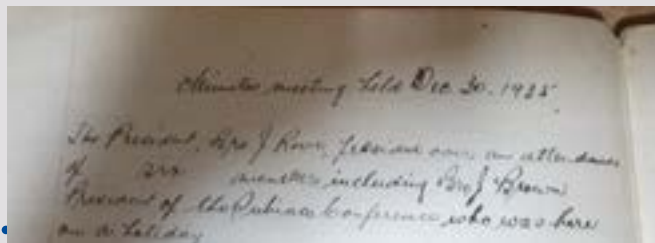 Minutes meeting held Dec. 30. 1935
The President, Bro J presided over an attendance
of six members including Bro J Brown
President of the Conference who was here
on a holiday